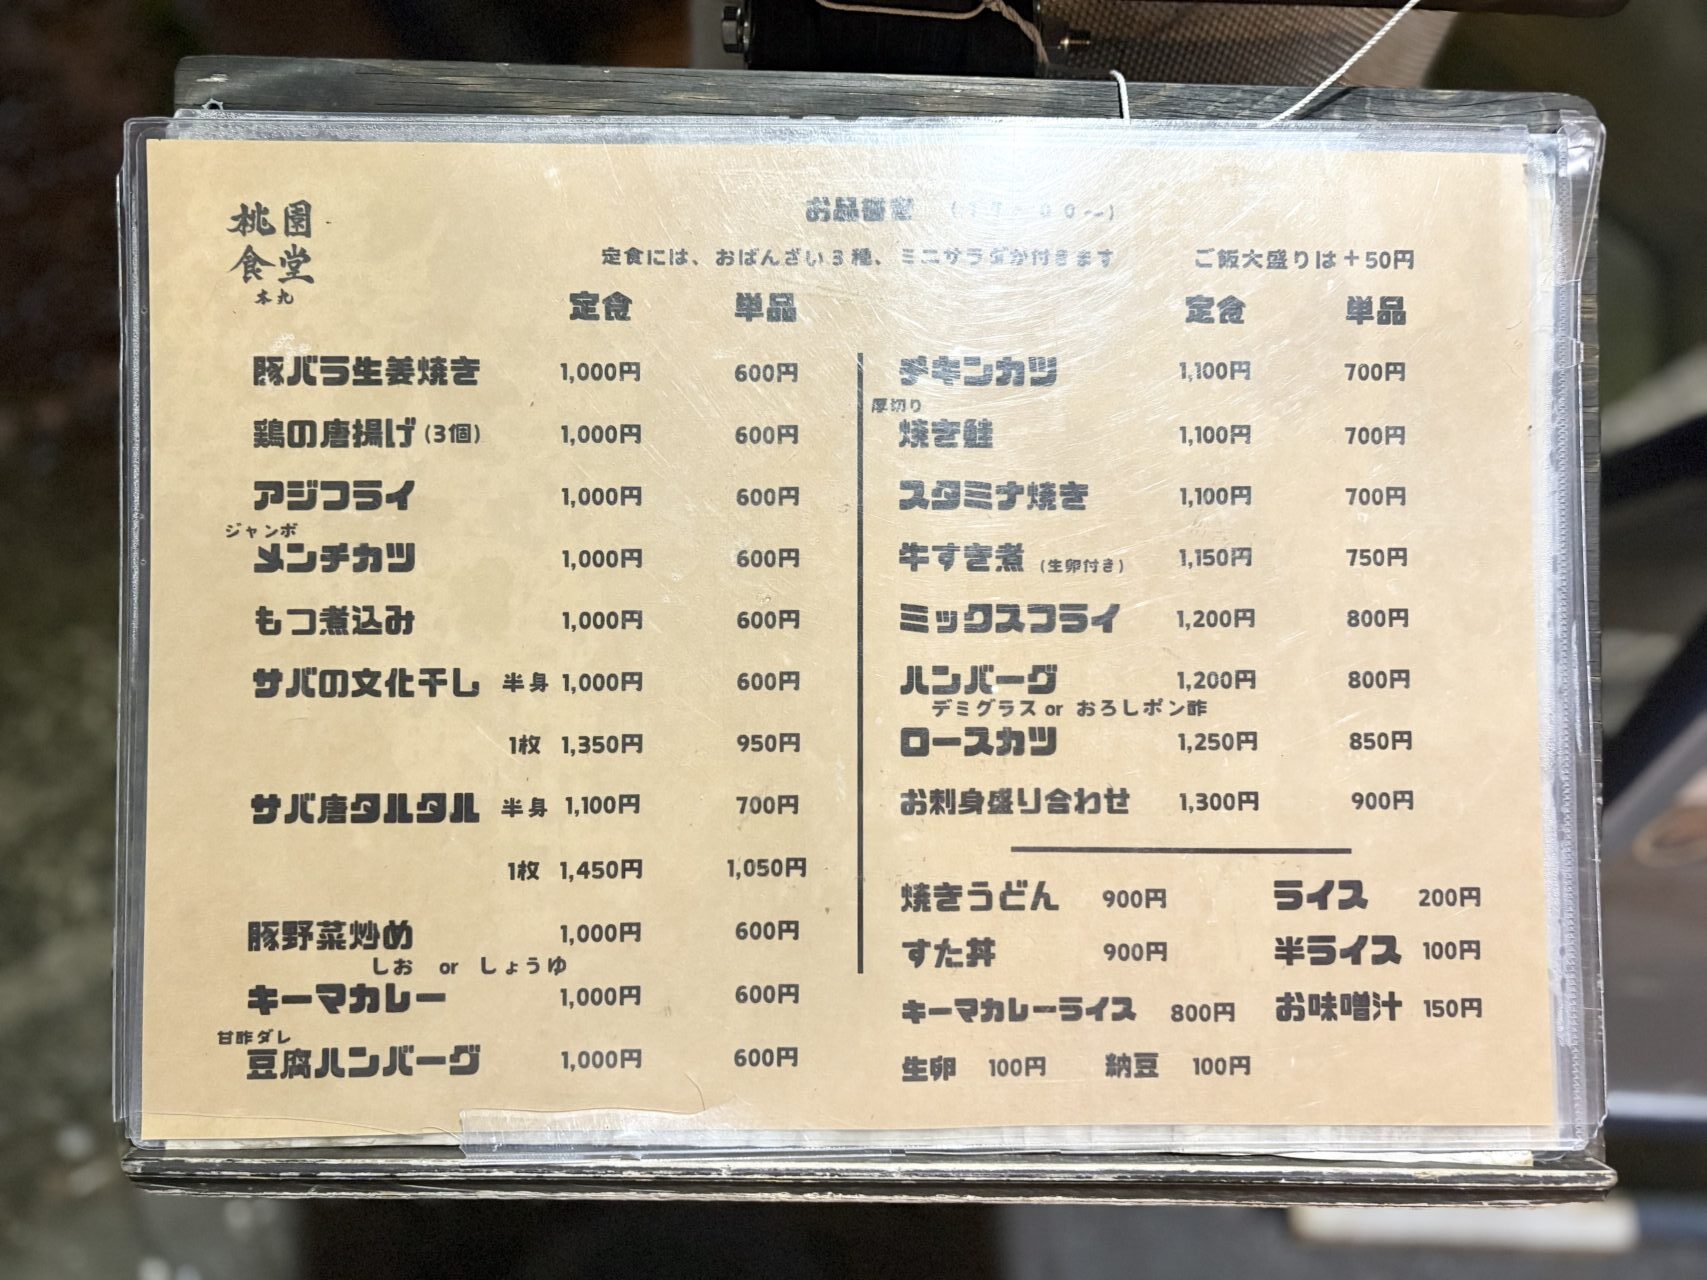 桃園
食堂
本丸
お品書き
定食には、おばんざい3種、ミニサラダが付きます ご飯大盛りは+50円
定食 単品
豚バラ生姜焼き 1,000円 600円
鶏の唐揚げ(3個) 1,000円 600円
アジフライ 1,000円 600円
ジャンボ
メンチカツ 1,000円 600円
もつ煮込み 1,000円 600円
サバの文化干し 半身 1,000円 600円
1枚 1,350円 950円
サバ唐タルタル 半身 1,100円 700円
1枚 1,450円 1,050円
豚野菜炒め 1,000円 600円
しお or しょうゆ
キーマカレー 1,000円 600円
甘酢ダレ
豆腐ハンバーグ 1,000円 600円
定食 単品
チキンカツ 1,100円 700円
厚切り
焼き鮭 1,100円 700円
スタミナ焼き 1,100円 700円
牛すき煮 (生卵付き) 1,150円 750円
ミックスフライ 1,200円 800円
ハンバーグ 1,200円 800円
デミグラス or おろしポン酢
ロースカツ 1,250円 850円
お刺身盛り合わせ 1,300円 900円
焼きうどん 900円 ライス 200円
すた丼 900円 半ライス 100円
キーマカレーライス 800円 お味噌汁 150円
生卵 100円 納豆 100円